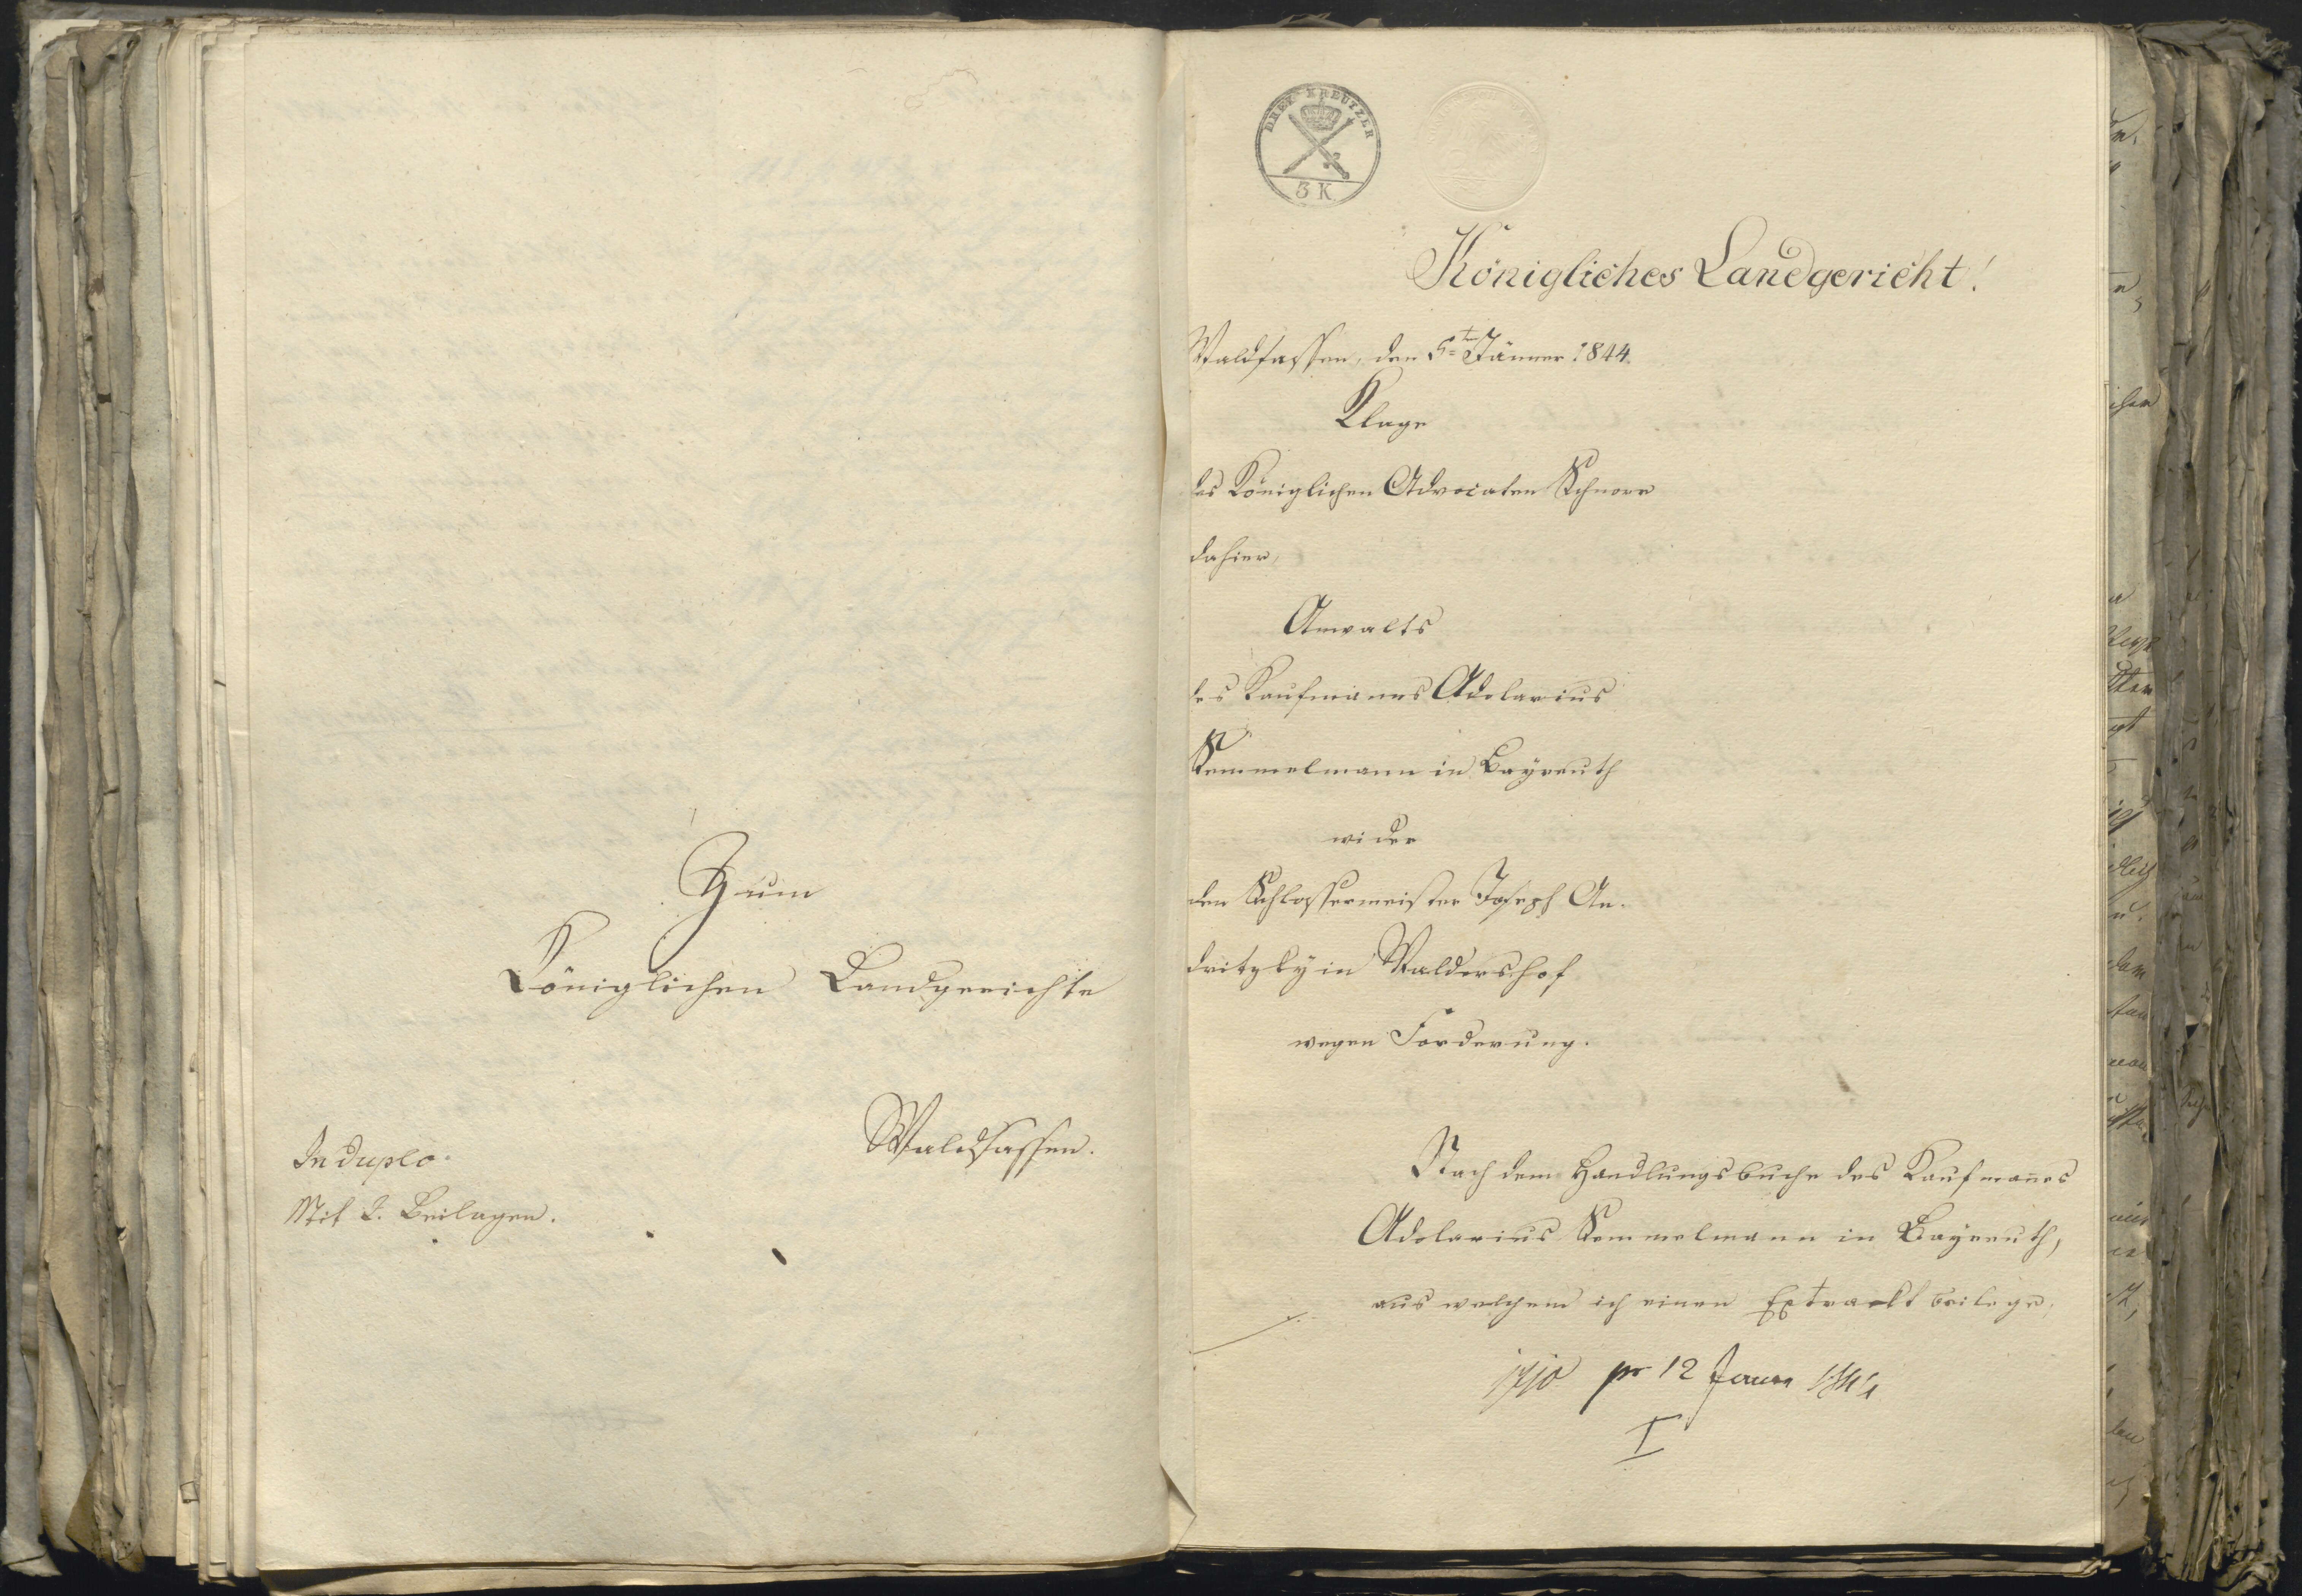 Zum
Königlichen Landgerichte
Waldsassen.
In duplo.
Mit 2. Beilagen.
DREY KREUTZER
3 K
Königliches Landgericht!
Waldsassen, den 5ten Jänner 1844.
Klage
des Königlichen Advocaten Schnorr
dahier,
Anwalts
des Kaufmannes Adolarius
Semmelmann in Bayreuth
wider
den Schlossermeister Joseph An-
dritzky in Waldershof
wegen Forderung.
Nach dem Handlungsbuche des Kaufmanns
Adolarius Semmelmann in Bayreuth,
aus welchem ich einen Extrackt beilege,
pr 12 Januar 1844
I